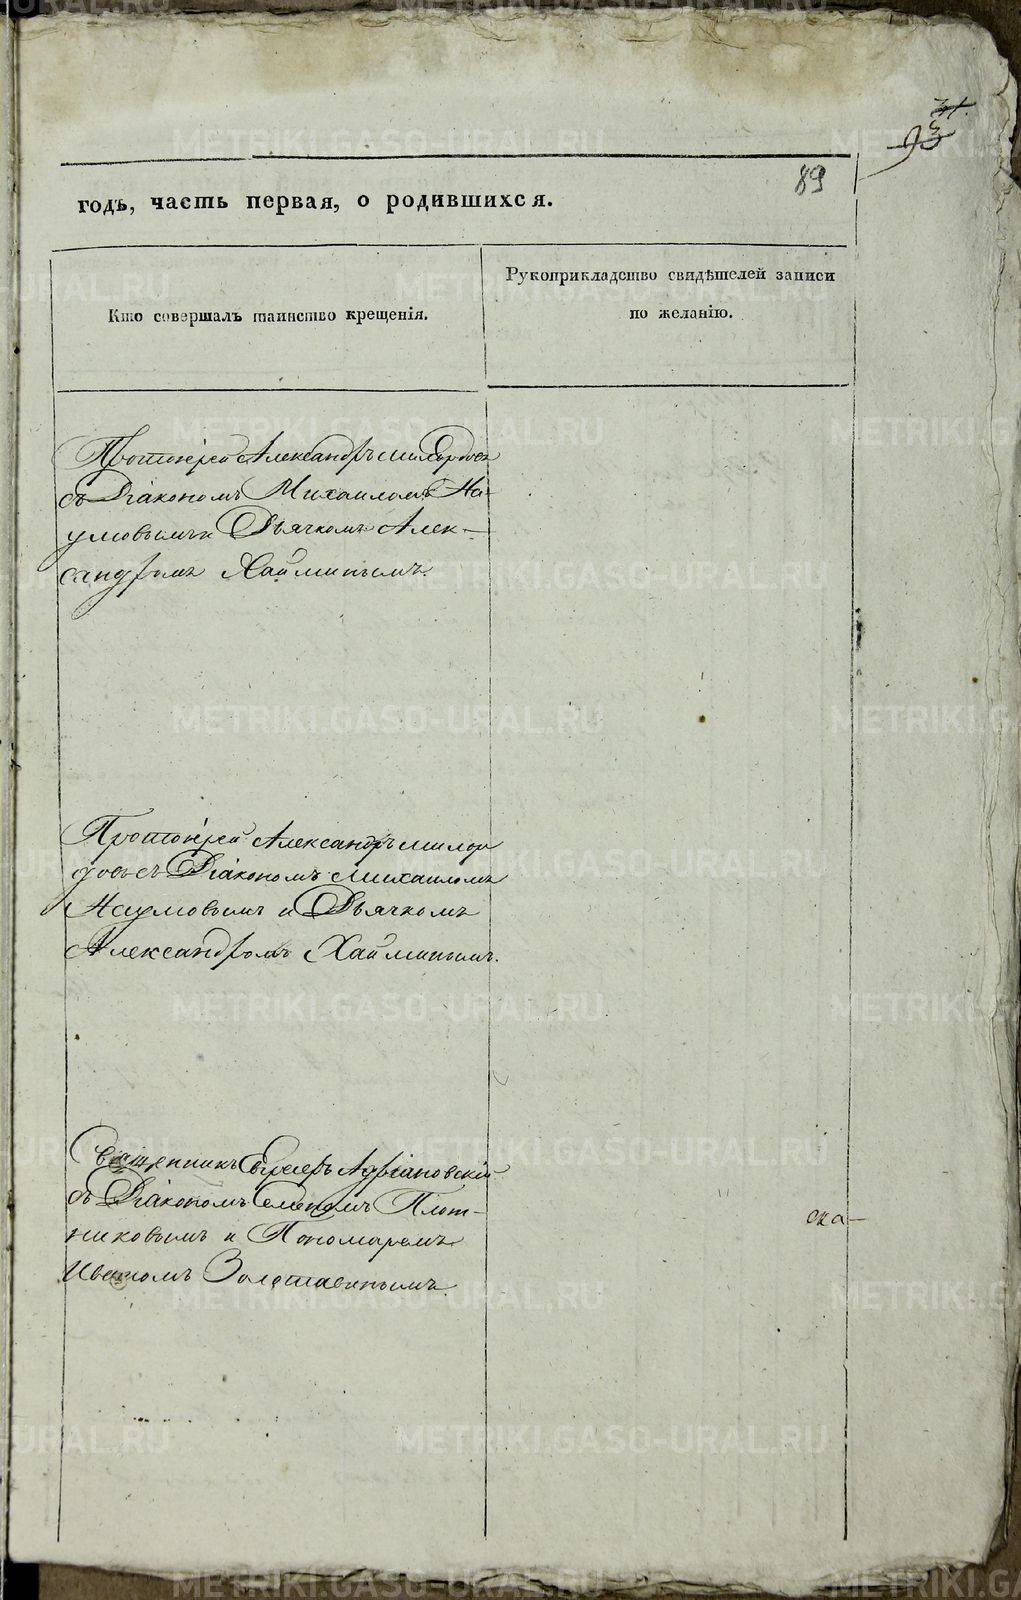 89
годъ, часть первая, о родившихся.
Кто совершалъ таинство крещенія.
Рукоприкладство свидѣтелей записи
по желанію.
Протоіерей Александръ Милордовъ
съ Діакономъ Михаиломъ На-
умовымъ и Дьячкомъ Алек-
сандромъ Хайминымъ.
Протоіерей Александръ Милор
довъ съ Діакономъ Михаиломъ
Наумовымъ и Дьячкомъ
Александромъ Хайминымъ.
Священникъ Адріановскій
съ Діакономъ Семеномъ Плот-
никовымъ и Пономаремъ
Иваномъ
ска-
METRIKI.GASO-URAL.RU